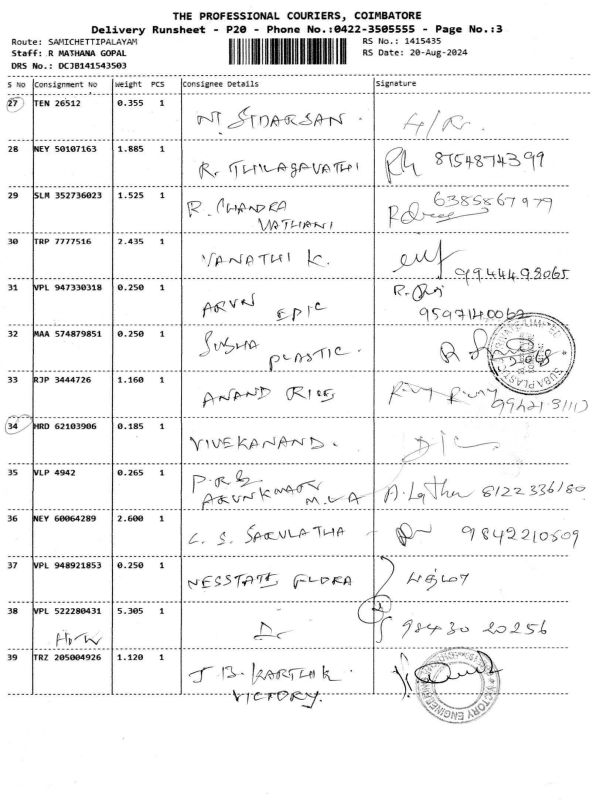 THE PROFESSIONAL COURIERS, COIMBATORE
Delivery Runsheet - P20 - Phone No.:0422-3505555 - Page No.:3
Route: SAMICHETTIPALAYAM
RS No.: 1415435
Staff: R MATHANA GOPAL
RS Date: 20-Aug-2024
DRS No.: DCJB141543503
S No Consignment No Weight PCS Consignee Details Signature
27 TEN 26512 0.355 1
28 NEY 50107163 1.885 1
R. THILAGAVATHI 8754874399
29 SLM 352736023 1.525 1
R. CHANDRA 6385867979
VATHANI
30 TRP 7777516 2.435 1
VANATHI K.
9944498065
31 VPL 947330318 0.250 1
ARUN EPIC
32 MAA 574879851 0.250 1
SUBHA
PLASTIC.
33 RJP 3444726 1.160 1
ANAND
34 HRD 62103906 0.185 1
VIVEKANAND.
35 VLP 4942 0.265 1
ARUNKUMAR M.L.A A. Latha 8122336180
36 NEY 60064289 2.600 1
C. S. SARULATHA 9842210509
37 VPL 948921853 0.250 1
NESSTATE FLORA பத்மா
38 VPL 522280431 5.305 1
98430 20256
39 TRZ 205004926 1.120 1
J B. KARTHIK.
VICTORY.
VICTORY ENGINEERING